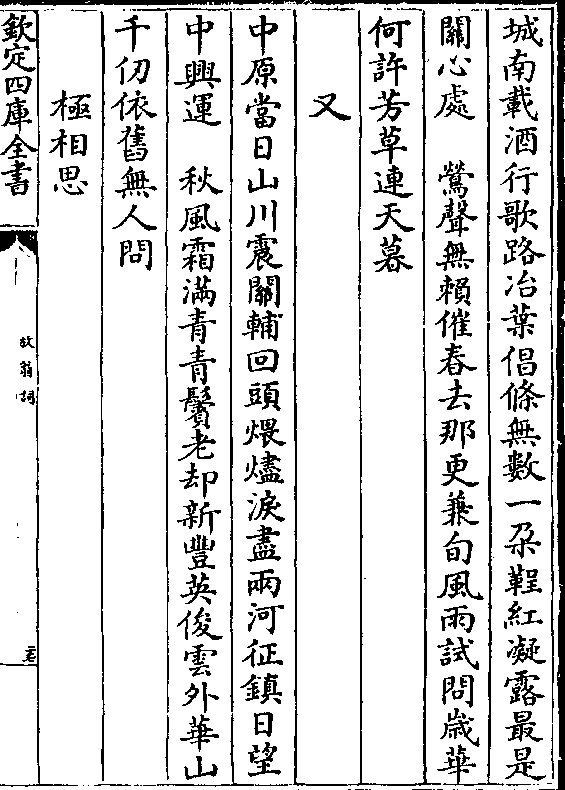 城南載酒行歌路冶葉倡條無數一朶鞓紅凝露最是
關心處　鶯聲無賴催春去那更兼旬風雨試問歲華
何許芳草連天暮
又
中原當日山川震關輔回頭煨燼淚盡兩河征鎮日望
中興運　秋風霜滿青青鬢老却新豐英俊雲外華山
千仞依舊無人問
極相思
欽定四庫全書
放翁詞